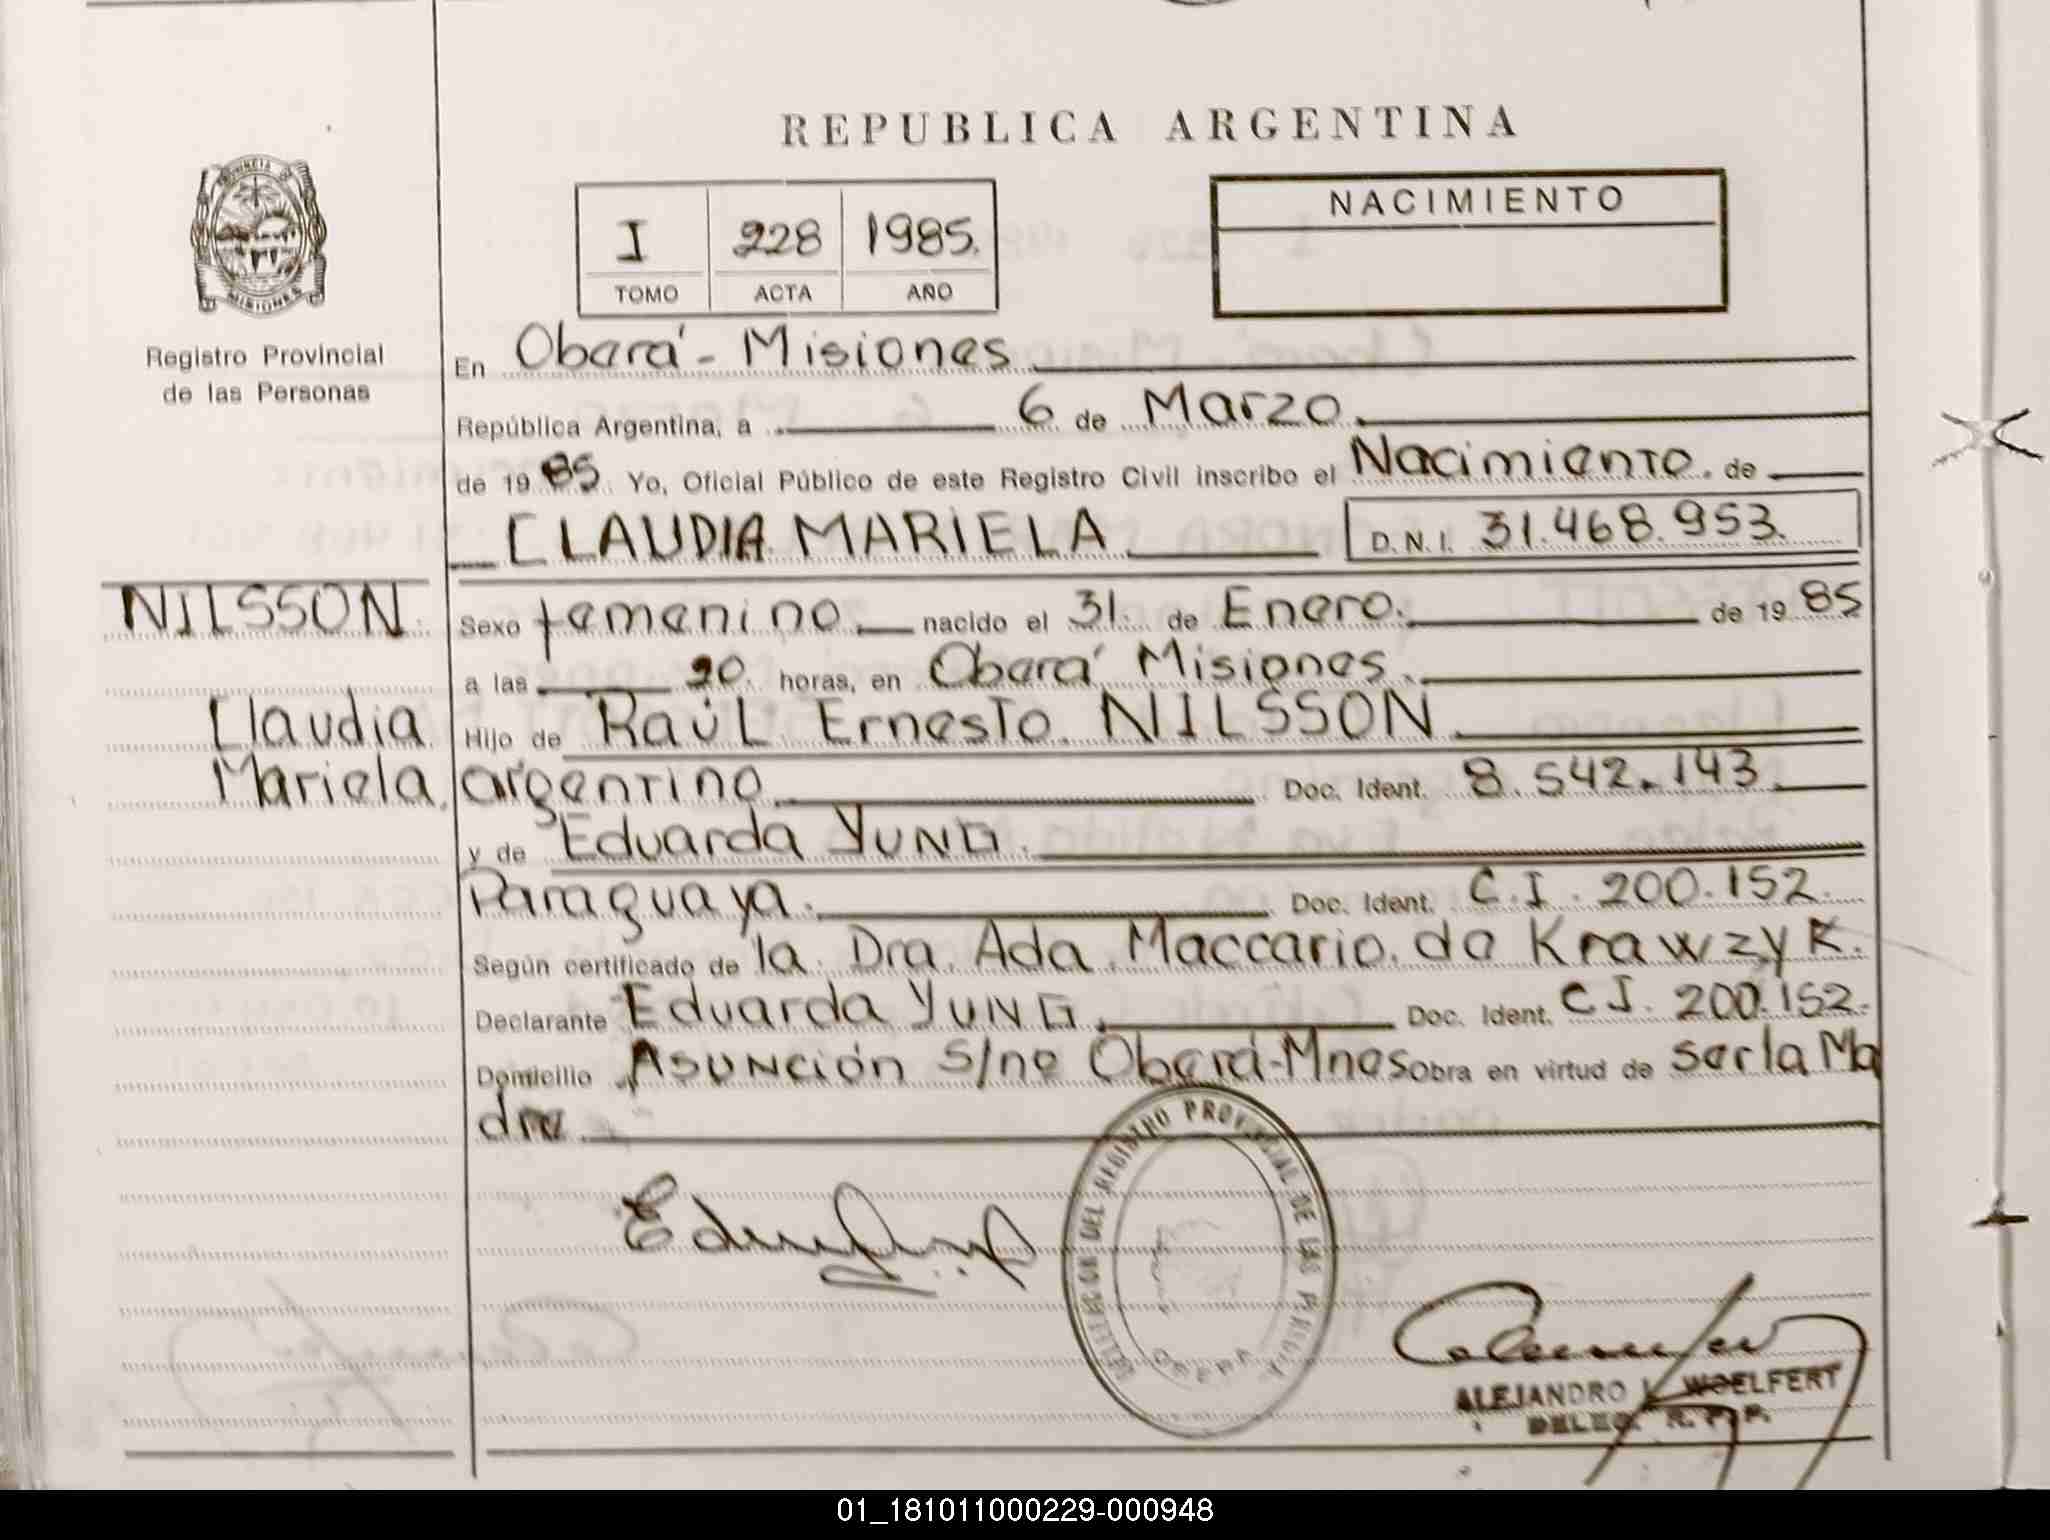 REPUBLICA ARGENTINA
PROVINCIA
MISIONES
Registro Provincial
de las Personas
I 228 1985.
TOMO ACTA AÑO
NACIMIENTO
En Oberá - Misiones
República Argentina, a 6 de Marzo.
de 1985 Yo, Oficial Público de este Registro Civil inscribo el Nacimiento. de
CLAUDIA MARIELA D.N.I. 31.468.953.
NILSSON
Claudia
Mariela.
Sexo femenino nacido el 31 de Enero. de 1985
a las 20 horas, en Oberá Misiones.
Hijo de Raúl Ernesto NILSSON
argentino Doc. Ident. 8.542.143
y de Eduarda YUNG.
Paraguaya. Doc. Ident. C.I. 200.152.
Según certificado de la Dra. Ada Maccario de Krawzyk.
Declarante Eduarda YUNG Doc. Ident. C.I. 200.152.
Domicilio Asunción s/ne Oberá-Mnes Obra en virtud de ser la Ma
dre
DELEGACION DEL REGISTRO PROVINCIAL DE LAS PERSONAS
OBERA
ALEJANDRO WOELFERT
DELEG. R. P. P.
01_181011000229-000948